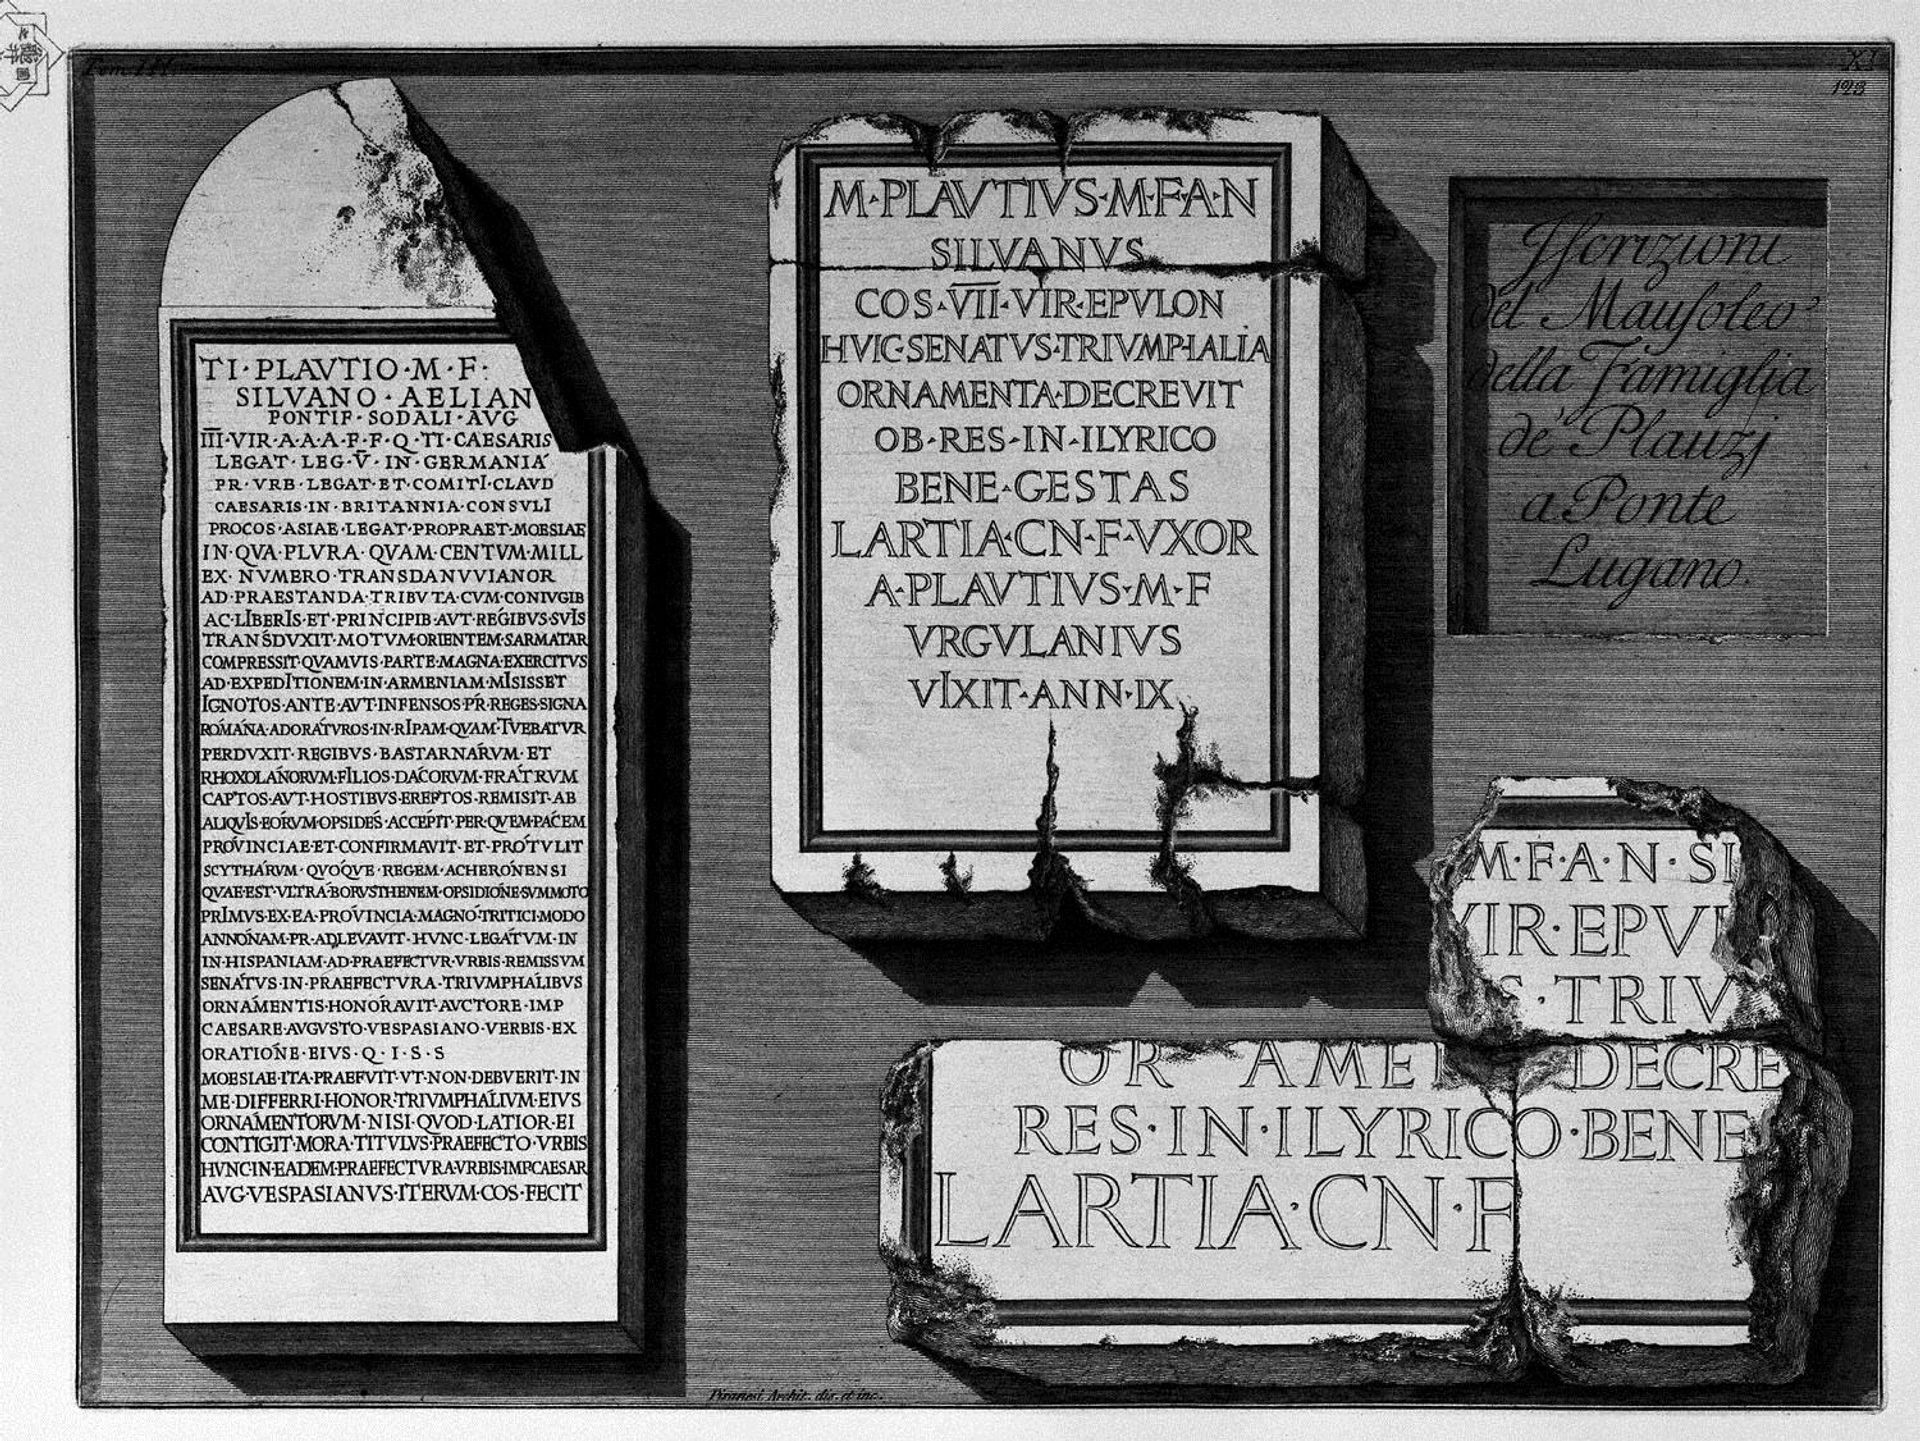 Tom. III.
XI
128
TI·PLAVTIO·M·F·
SILVANO·AELIAN
PONTIF·SODALI·AVG
III·VIR·A·A·A·F·F·Q·TI·CAESARIS
LEGAT·LEG·V·IN·GERMANIA
PR·VRB·LEGAT·ET·COMITI·CLAVD
CAESARIS·IN·BRITANNIA·CONSVLI
PROCOS·ASIAE·LEGAT·PROPRAET·MOESIAE
IN·QVA·PLVRA·QVAM·CENTVM·MILL
EX·NVMERO·TRANSDANVVIANOR
AD·PRAESTANDA·TRIBVTA·CVM·CONIVGIB
AC·LIBERIS·ET·PRINCIPIB·AVT·REGIBVS·SVIS
TRANSDVXIT·MOTVM·ORIENTEM·SARMATAR
COMPRESSIT·QVAMVIS·PARTE·MAGNA·EXERCITVS
AD·EXPEDITIONEM·IN·ARMENIAM·MISISSET
IGNOTOS·ANTE·AVT·INFENSOS·PR·REGES·SIGNA
ROMANA·ADORATVROS·IN·RIPAM·QVAM·TVEBATVR
PERDVXIT·REGIBVS·BASTARNARVM·ET
RHOXOLANORVM·FILIOS·DACORVM·FRATRVM
CAPTOS·AVT·HOSTIBVS·EREPTOS·REMISIT·AB
ALIQVIS·EORVM·OPSIDES·ACCEPIT·PER·QVEM·PACEM
PROVINCIAE·ET·CONFIRMAVIT·ET·PROTVLIT
SCYTHARVM·QVOQVE·REGEM·ACHERONENSI
QVAE·EST·VLTRA·BORVSTHENEM·OPSIDIONE·SVMMOTO
PRIMVS·EX·EA·PROVINCIA·MAGNO·TRITICI·MODO
ANNONAM·PR·ADLEVAVIT·HVNC·LEGATVM·IN
IN·HISPANIAM·AD·PRAEFECTVR·VRBIS·REMISSVM
SENATVS·IN·PRAEFECTVRA·TRIVMPHALIBVS
ORNAMENTIS·HONORAVIT·AVCTORE·IMP
CAESARE·AVGVSTO·VESPASIANO·VERBIS·EX
ORATIONE·EIVS·Q·I·S·S
MOESIAE·ITA·PRAEFVIT·VT·NON·DEBVERIT·IN
ME·DIFFERRI·HONOR·TRIVMPHALIVM·EIVS
ORNAMENTORVM·NISI·QVOD·LATIOR·EI
CONTIGIT·MORA·TITVLVS·PRAEFECTO·VRBIS
HVNC·IN·EADEM·PRAEFECTVRA·VRBIS·IMP·CAESAR
AVG·VESPASIANVS·ITERVM·COS·FECIT
M·PLAVTIVS·M·F·A·N
SILVANVS
COS·VII·VIR·EPVLON
HVIC·SENATVS·TRIVMPHALIA
ORNAMENTA·DECREVIT
OB·RES·IN·ILYRICO
BENE·GESTAS
LARTIA·CN·F·VXOR
A·PLAVTIVS·M·F
VRGVLANIVS
VIXIT·ANN·IX
Iscrizioni
del Mausoleo
della Famiglia
de' Plauzj
a Ponte
Lugano.
M·F·A·N·SI
VIR·EPVL
S·TRIV
OR AMEN DECRE
RES·IN·ILYRICO·BENE
LARTIA·CN·F
Piranesi Archit. dis. et inc.